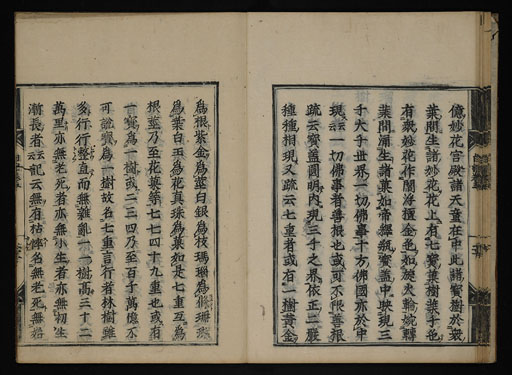 億妙花宮殿諸天童在中此諸寶樹於衆
葉間生諸妙花花上有七寶菓樹葉千色
有衆妙花作閻浮檀金色如旋火輪婉轉
葉間涌生諸菓如帝釋瓶寶蓋中映現三
千大千世界一切佛事十方佛國亦於中
現云云一切佛事者善根也或可不限善根
疏云寶蓋圓明內現三千之界依正二嚴
種種相現又疏云七重者或有一樹黃金
爲根紫金爲莖白銀爲枝瑪瑙爲條珊瑚
爲葉白玉爲花真珠爲菓如是七重互爲
根莖乃至花菓等七七四十九重也或有
一寶爲一樹或二三四乃至百千萬億不
可說寶爲一樹故名七重言行者林樹雖
多行行整直而無雜亂一一樹高三十二
萬里亦無老死者亦無小生者亦無初生
漸長者云云記云無有枯悴名無老死無